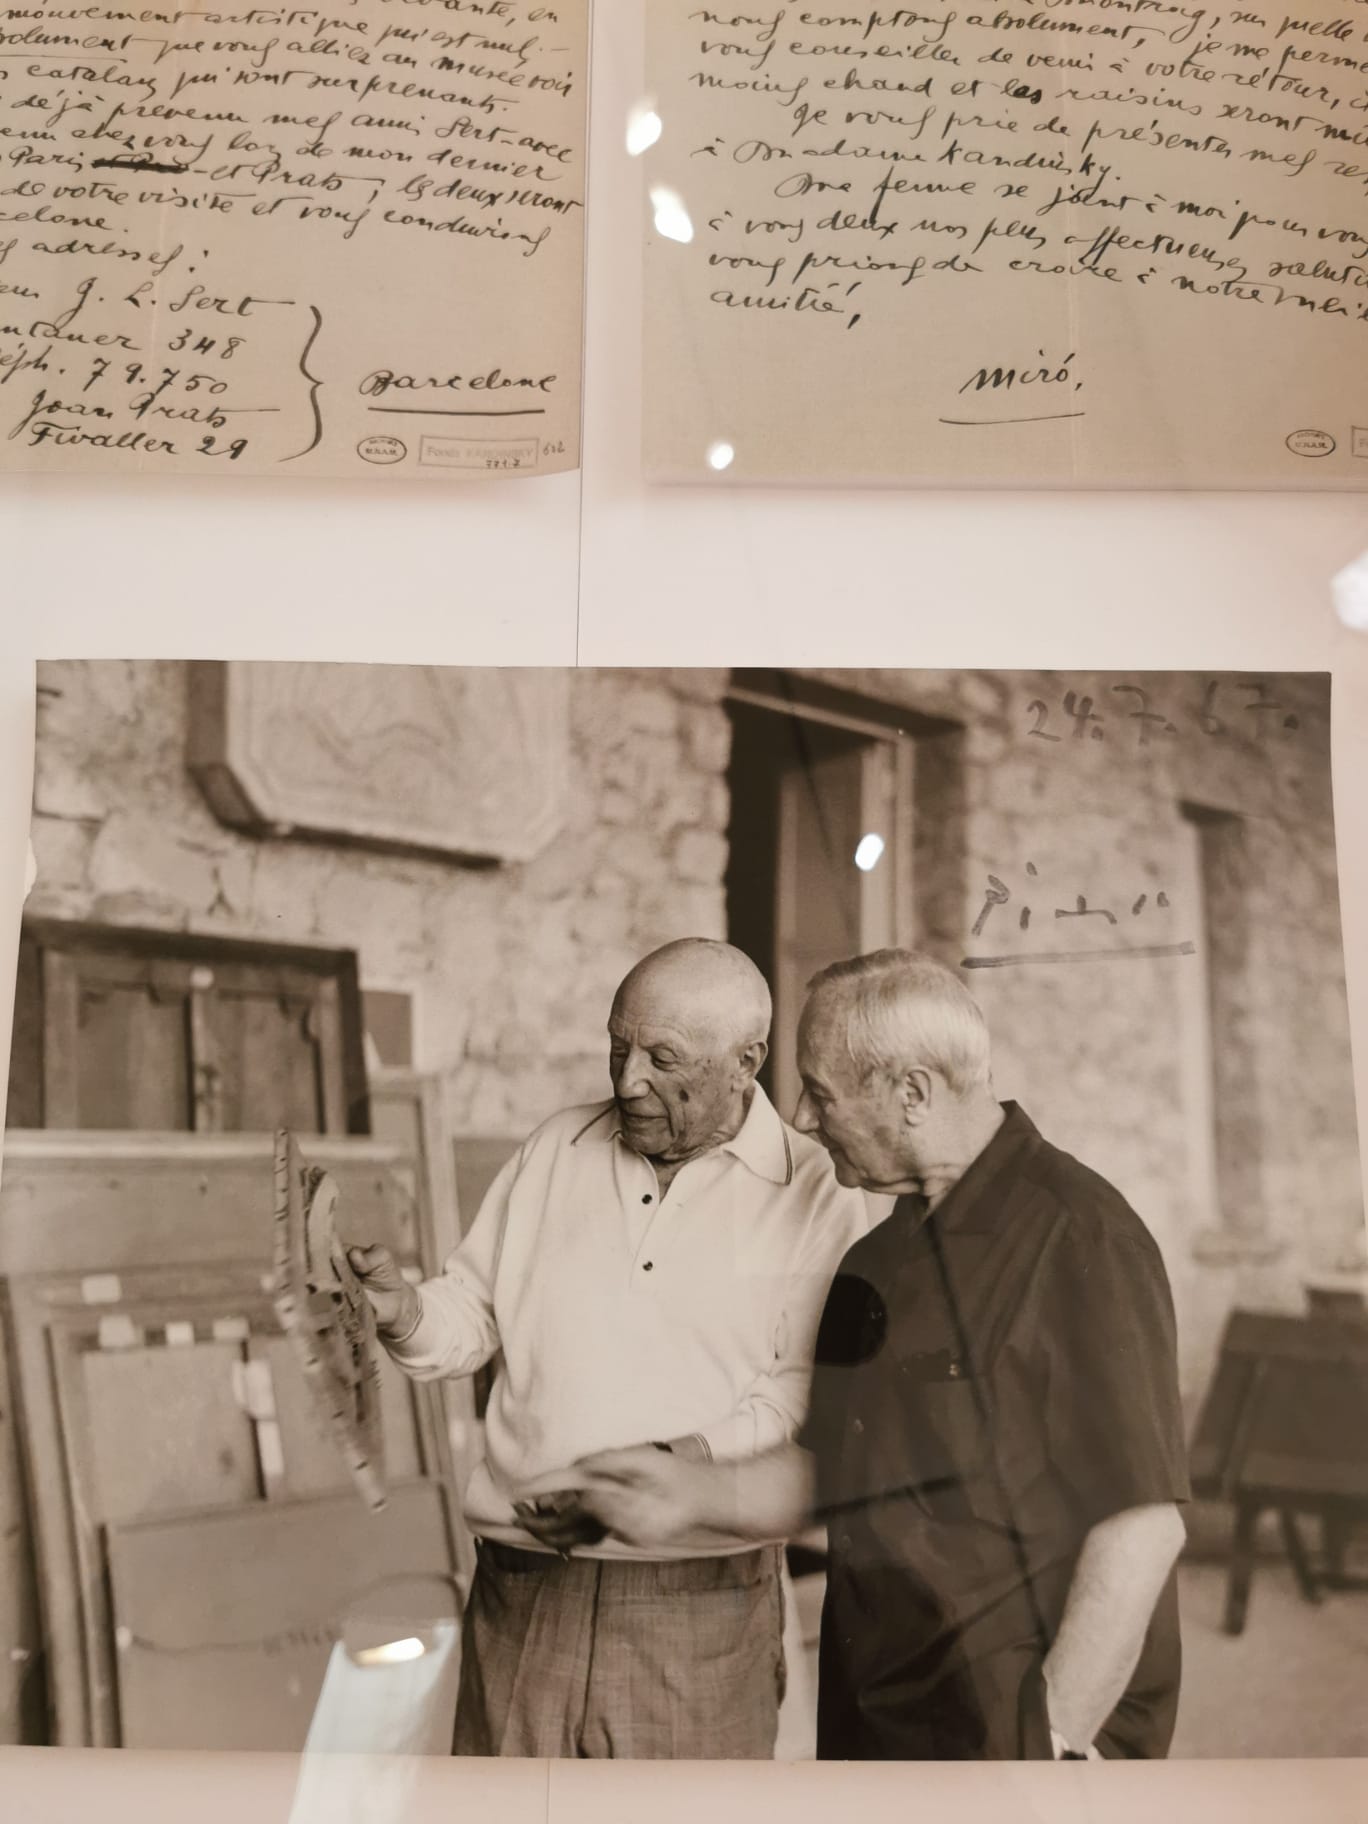 vante, en
mouvement artistique qui est nul. —
solument que vous alliez au musée voir
s catalans qui sont surprenants.
déjà prévenu mes amis Sert - avec
venu chez vous lors de mon dernier
Paris - et Prats ; les deux seront
de votre visite et vous conduirons
celone.
s adresses :
G. L. Sert
ntaner 348
éph. 79.750
Joan Prats
Fivaller 29
Barcelone
Fonds KANDINSKY
602
Montroig, sur
nous comptons absolument, je me perme
vous conseiller de venir à votre retour,
moins chaud et les raisins seront mû
Je vous prie de présenter mes res
à Madame Kandinsky.
Ma femme se joint à moi pour vous
à vous deux nos plus affectueuses saluta
vous prions de croire à notre
amitié,
Miró.
24.7.67.
Picasso